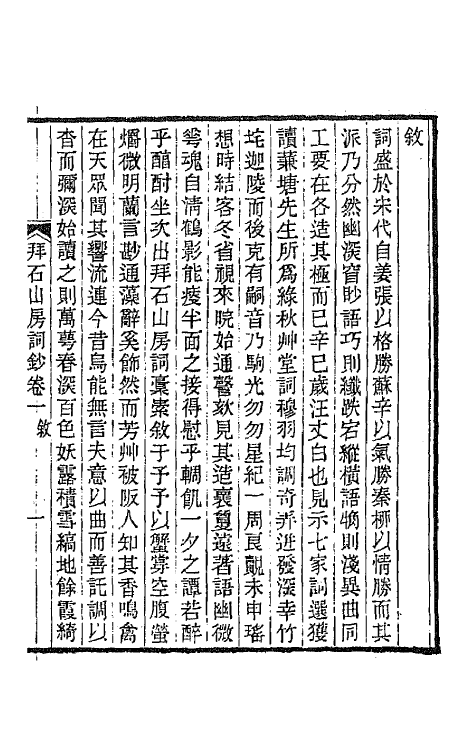 敘
詞盛於宋代自姜張以格勝蘇辛以氣勝秦柳以情勝而其
派乃分然幽深窅眇語巧則纖跌宕縱橫語觕則淺異曲同
工要在各造其極而已辛巳歲汪丈白也見示七家詞選獲
讀蒹塘先生所爲綠秋艸堂詞穆羽均調奇弄迸發深幸竹
垞迦陵而後克有嗣音乃駒光勿勿星紀一周良覿未申瑤
想時結客冬省視來晥始通謦欬見其造襄敻遠箸語幽微
䔢魂自清鶴影能瘦半面之接得慰乎輖飢一夕之譚若醉
乎醇酎坐次出拜石山房詞稾索敘于予予以蟹筦空腹螢
爝微明蘭言尟通藻辭奚飾然而芳艸被阪人知其香鳴禽
在天眾聞其響流連今昔烏能無言夫意以曲而善託調以
杳而彌深始讀之則萬萼春深百色妖露積雪縞地餘霞綺
拜石山房詞鈔卷一 敘 一